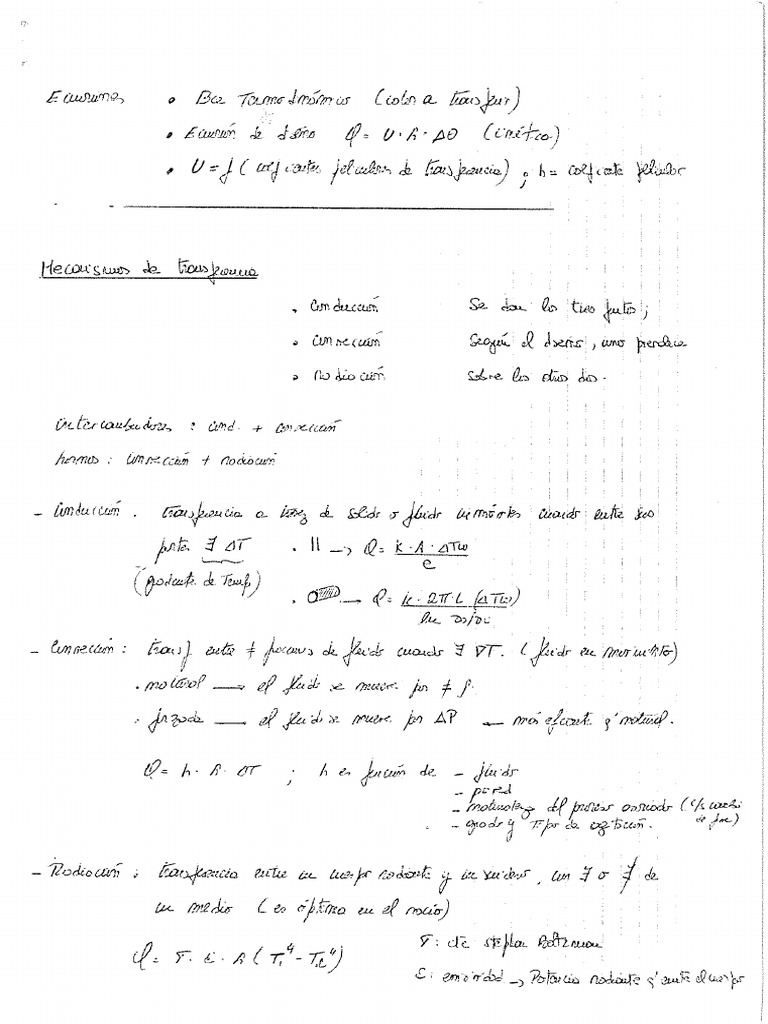 Ecuaciones • Bce Termodinámico (calor a transferir)
• Ecuación de diseño Q = U · A · Δθ (cinético)
• U = f (coeficientes peliculares de transferencia) ; h = coeficiente pelicular
Mecanismos de transferencia
• Conducción Se dan los tres juntos;
• Convección Según el diseño, uno predomina
• Radiación sobre los otros dos.
intercambiadores : cond. + convección
hornos : convección + radiación
- Conducción : transferencia a través de sólido o fluido inmóviles cuando entre sus
partes ∃ ΔT • || → Q = K · A · ΔTw / e
(gradiente de Temp)
• → Q = K · 2π · L (ΔTw) / ln Do/Di
- Convección : transf entre ≠ porciones de fluido cuando ∃ ∇T. (fluido en movimiento)
• natural → el fluido se mueve por ≠ ρ.
• forzada → el fluido se mueve por ΔP — más eficiente q' natural.
Q = h · A · ΔT ; h es función de - fluido
- pared
- naturaleza del proceso asociado (c/s cambio de fase)
- grado y Tipo de agitación.
- Radiación : transferencia entre un cuerpo radiante y un sumidero, con ∃ o ∄ de
un medio (es óptima en el vacío)
Q = σ · ε · A (T₁⁴ - T₂⁴) σ : cte Stefan Boltzman
ε : emisividad → Potencia radiante q' emite el cuerpo